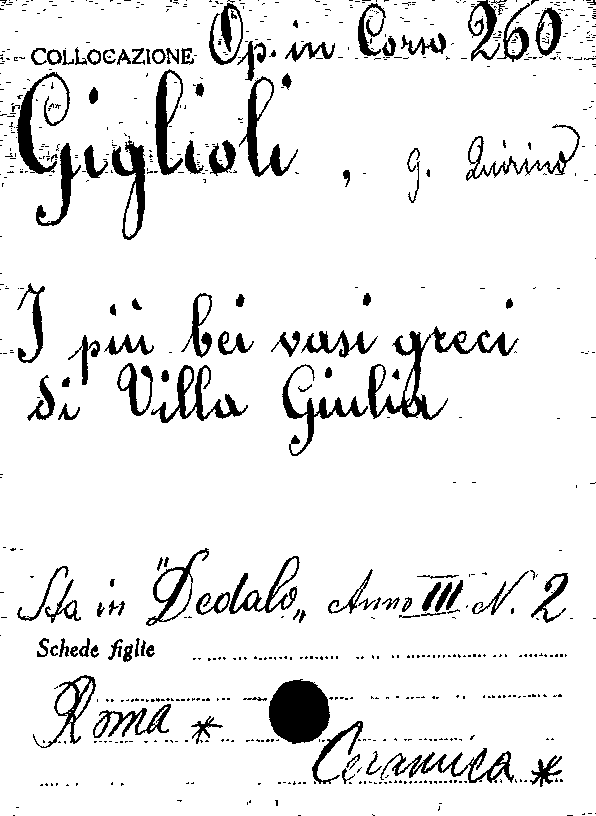 COLLOCAZIONE Op. in Corso 260
Giglioli, G. Quirino
I più bei vasi greci
di Villa Giulia
Sta in "Dedalo„ Anno III N. 2
Schede figlie
Roma *
Ceramica *